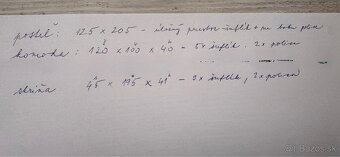 posteľ: 125 x 205 - úložný priestor šuflík + na boku police
komoda: 120 x 100 x 40 - 5x šuflík, 2x police
skriňa 45 x 195 x 41 - 2x šuflík, 2x police
Bazos.sk